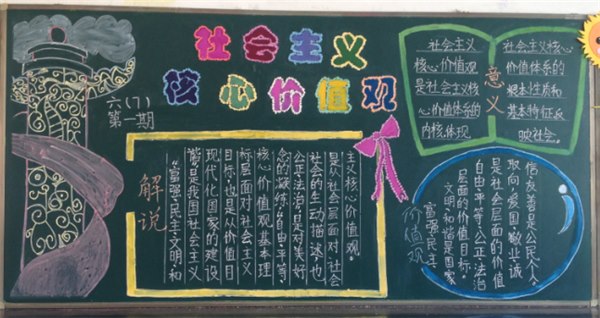 社会主义
核心价值观
六(7)
第一期
解说
“富强、民主、文明、和
谐”是我国社会主义
现代化国家的建设
目标,也是从价值目
标层面对社会主义
核心价值观基本理
念的凝练。“自由、平等、
公正、法治”,是对美好
社会的生动描述,也
是从社会层面对社会
主义核心价值观。
意义
社会主义
核心价值观
是社会主义核
心价值体系的
内核,体现
社会主义核心
价值体系的
根本性质和
基本特征,反
映社会。
价值观
富强、民主、
文明、和谐是国家
层面的价值目标。
自由、平等、公正、法治
是社会层面的价值
取向,爱国、敬业、诚
信、友善是公民个人。